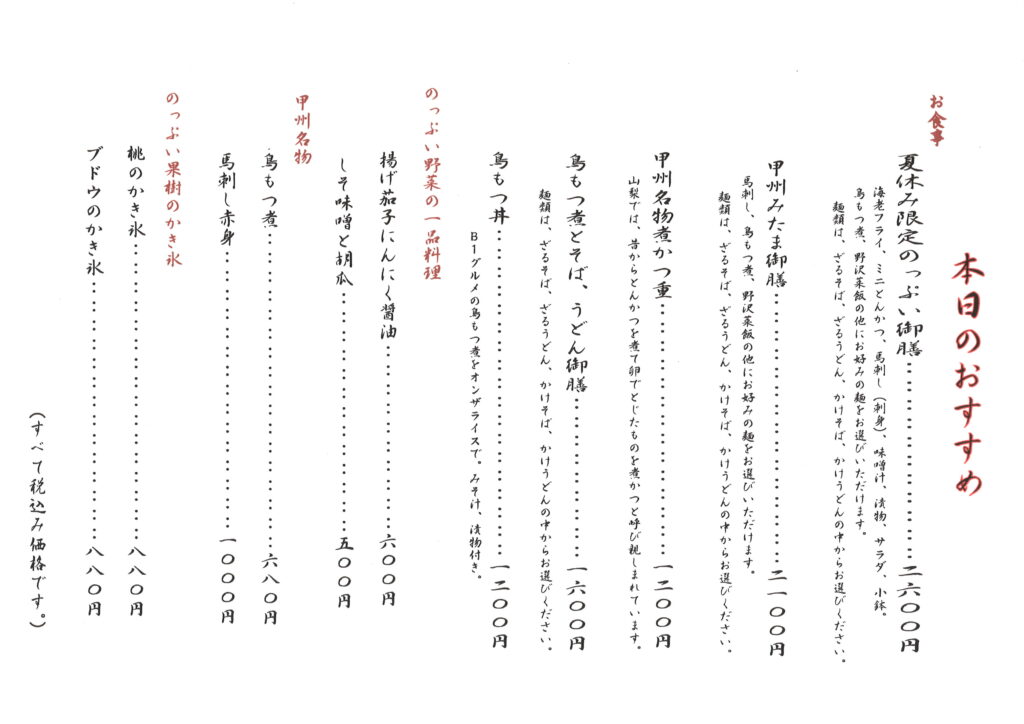 本日のおすすめ
お食事
夏休み限定のっぷい御膳……………………二六〇〇円
海老フライ、ミニとんかつ、馬刺し（刺身）、味噌汁、漬物、サラダ、小鉢。
鳥もつ煮、野沢菜飯の他にお好みの麺をお選びいただけます。
麺類は、ざるそば、ざるうどん、かけそば、かけうどんの中からお選びください。
甲州みたま御膳……………………二一〇〇円
馬刺し、鳥もつ煮、野沢菜飯の他にお好みの麺をお選びいただけます。
麺類は、ざるそば、ざるうどん、かけそば、かけうどんの中からお選びください。
甲州名物煮かつ重……………………一二〇〇円
山梨では、昔からとんかつを煮て卵でとじたものを煮かつと呼び親しまれています。
鳥もつ煮とそば、うどん御膳……………………一六〇〇円
麺類は、ざるそば、ざるうどん、かけそば、かけうどんの中からお選びください。
鳥もつ丼……………………一二〇〇円
B1グルメの鳥もつ煮をオンザライスで。みそ汁、漬物付き。
のっぷい野菜の一品料理
揚げ茄子にんにく醤油……………………六〇〇円
しそ味噌と胡瓜……………………五〇〇円
甲州名物
鳥もつ煮……………………六八〇円
馬刺し赤身……………………一〇〇〇円
のっぷい果樹のかき氷
桃のかき氷……………………八八〇円
ブドウのかき氷……………………八八〇円
（すべて税込み価格です。）